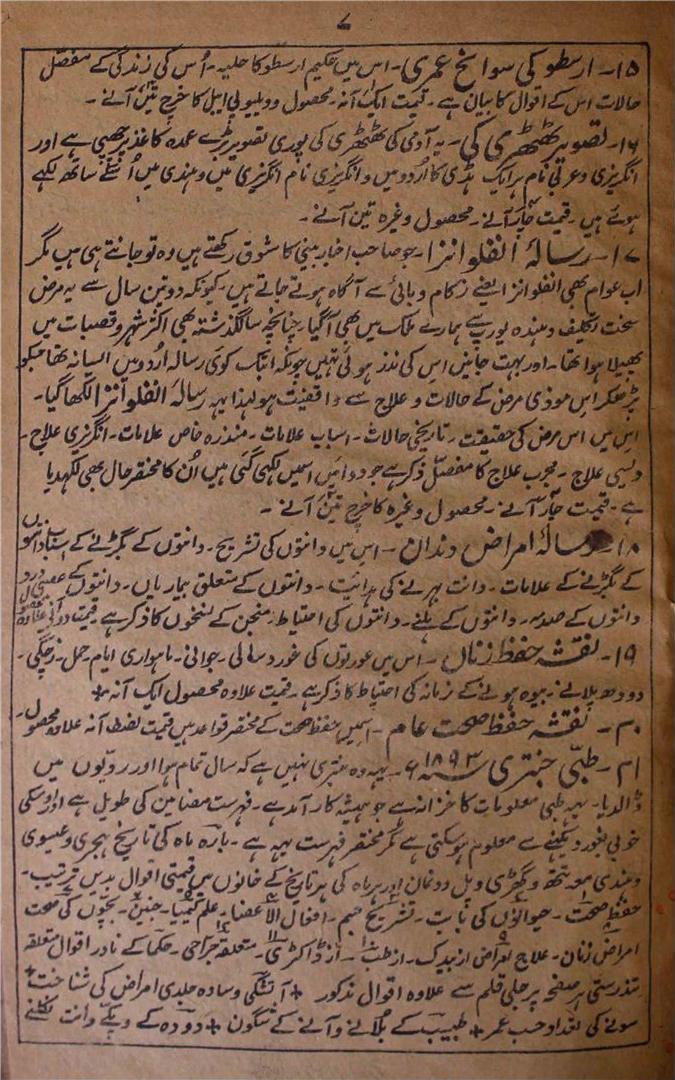 ۷
۱۵۔ ارسطو کی سوانح عمری۔ اس میں حکیم ارسطو کا حلیہ۔ اُس کی زندگی کے مفصل
حالات اس کے اقوال کا بیان ہے۔ قیمت ایک آنہ۔ محصول وویلیوپی ایبل کا خرچ تین آنے۔
۱۶۔ تصویر ٹھٹھری کی۔ یہ آدمی کی ٹھٹھری کی پوری تصویر بڑے عمدہ کاغذ پر چھپی ہے اور
انگریزی وعربی نام ہر ایک ہڈی کا اُردو میں وانگریزی نام انگریزی میں وہندی میں اُسکے ساتھ لکھے
ہوئے ہیں۔ قیمت چار آنے۔ محصول وغیرہ تین آنے۔
۱۷۔ رسالۂ انفلوانزا۔ جو صاحب اخبار بینی کا شوق رکھتے ہیں وہ تو جانتے ہی ہیں مگر
اب عوام بھی انفلوانزا یعنے زکام وبائی سے آگاہ ہوتے جاتے ہیں۔ کیونکہ دو تین سال سے یہ مرض
سخت تکلیف دہندہ یورپ سے ہمارے ملک میں بھی آگیا۔ چنانچہ سالگذشتہ بھی اکثر شہر وقصبات میں
پھیلا ہوا تھا۔ اور بہت جانیں اس کی نذر ہوئی تھیں چونکہ ابتک کوئی رسالہ اُردو میں ایسا نہ تھا جسکو
پڑھکر اس موذی مرض کے حالات و علاج سے واقفیت ہو لہذا یہہ رسالۂ انفلوانزا لکھا گیا۔
اس میں اس مرض کی حقیقت۔ تاریخی حالات۔ اسباب علامات۔ منذرہ خاص علامات۔ انگریزی علاج۔
دیسی علاج۔ مجرب علاج کا مفصل ذکر ہے جو دوائیں اسمیں لکھی گئی ہیں اُن کا مختصر حال بھی لکھدیا
ہے۔ قیمت چار آنے۔ محصول وغیرہ کا خرچ تین آنے۔
۱۸۔ رسالۂ امراض دندان۔ اس میں دانتوں کی تشریح۔ دانتوں کے بگڑنے کے اسباب دانتوں
کے بگڑنے کے علامات۔ دانت بہرنے کی ہدائیت۔ دانتوں کے متعلق بیماریاں۔ دانتوں کے عصبی درد
دانتوں کے صدمہ۔ دانتوں کے ہلنے۔ دانتوں کی احتیاط۔ منجن کے نسخوں کا ذکر ہے قیمت دو آنے علاوہ محصول
۱۹۔ نقشہ حفظ زنان۔ اس میں عورتوں کی خورد سالی۔ جوانی۔ ماہواری ایام۔ حمل۔ زچگی۔
دودھ پلانے۔ بیوہ ہونے کے زمانہ کی احتیاط کا ذکر ہے۔ قیمت علاوہ محصول ایک آنہ +
۲۰۔ نقشہ حفظ صحت عام۔ اسمیں حفظ صحت کے مختصر قواعد ہیں قیمت نصف آنہ علاوہ محصول۔
۲۱۔ طبّی جنتری سنہ ۱۸۹۳ء۔ یہہ وہ جنتری نہیں ہے کہ سال تمام ہوا اور ردیوں میں
ڈالدیا۔ یہہ طبی معلومات کا خزانہ ہے جو ہمیشہ کار آمد ہے۔ فہرست مضامین کی طویل ہے اور اوسکی
خوبی بغور دیکھنے سے معلوم ہوسکتی ہے مگر مختصر فہرست یہہ ہے۔ بارہ ماہ کی تاریخ ہجری وعیسوی
وہندی مع تتھ وگھڑی وپل ودنمان اور ہر ماہ کی ہر تاریخ کے خانوں میں قیمتی اقوال بدیں ترتیب۔
حفظ صحت۔ حیوانوں کی بابت۔ تشریح جسم۔ افعال الاعضا۔ علم کیمیا۔ جنین۔ بچوں کی صحت
امراض زنان۔ علاج امراض از بیدک۔ از طب۔ از ڈاکٹری۔ متعلقہ جراحی۔ حکما کے نادر اقوال متعلقہ
تندرستی ہر صفحہ پر جلی قلم سے علاوہ اقوال مذکور + آتشکی وسادہ جلدی امراض کی شناخت +
سونے کی تعداد حسب عمر + طبیب کے بُلانے وآنے کے شگون + دودہ کے وپکے دانت نکلنے